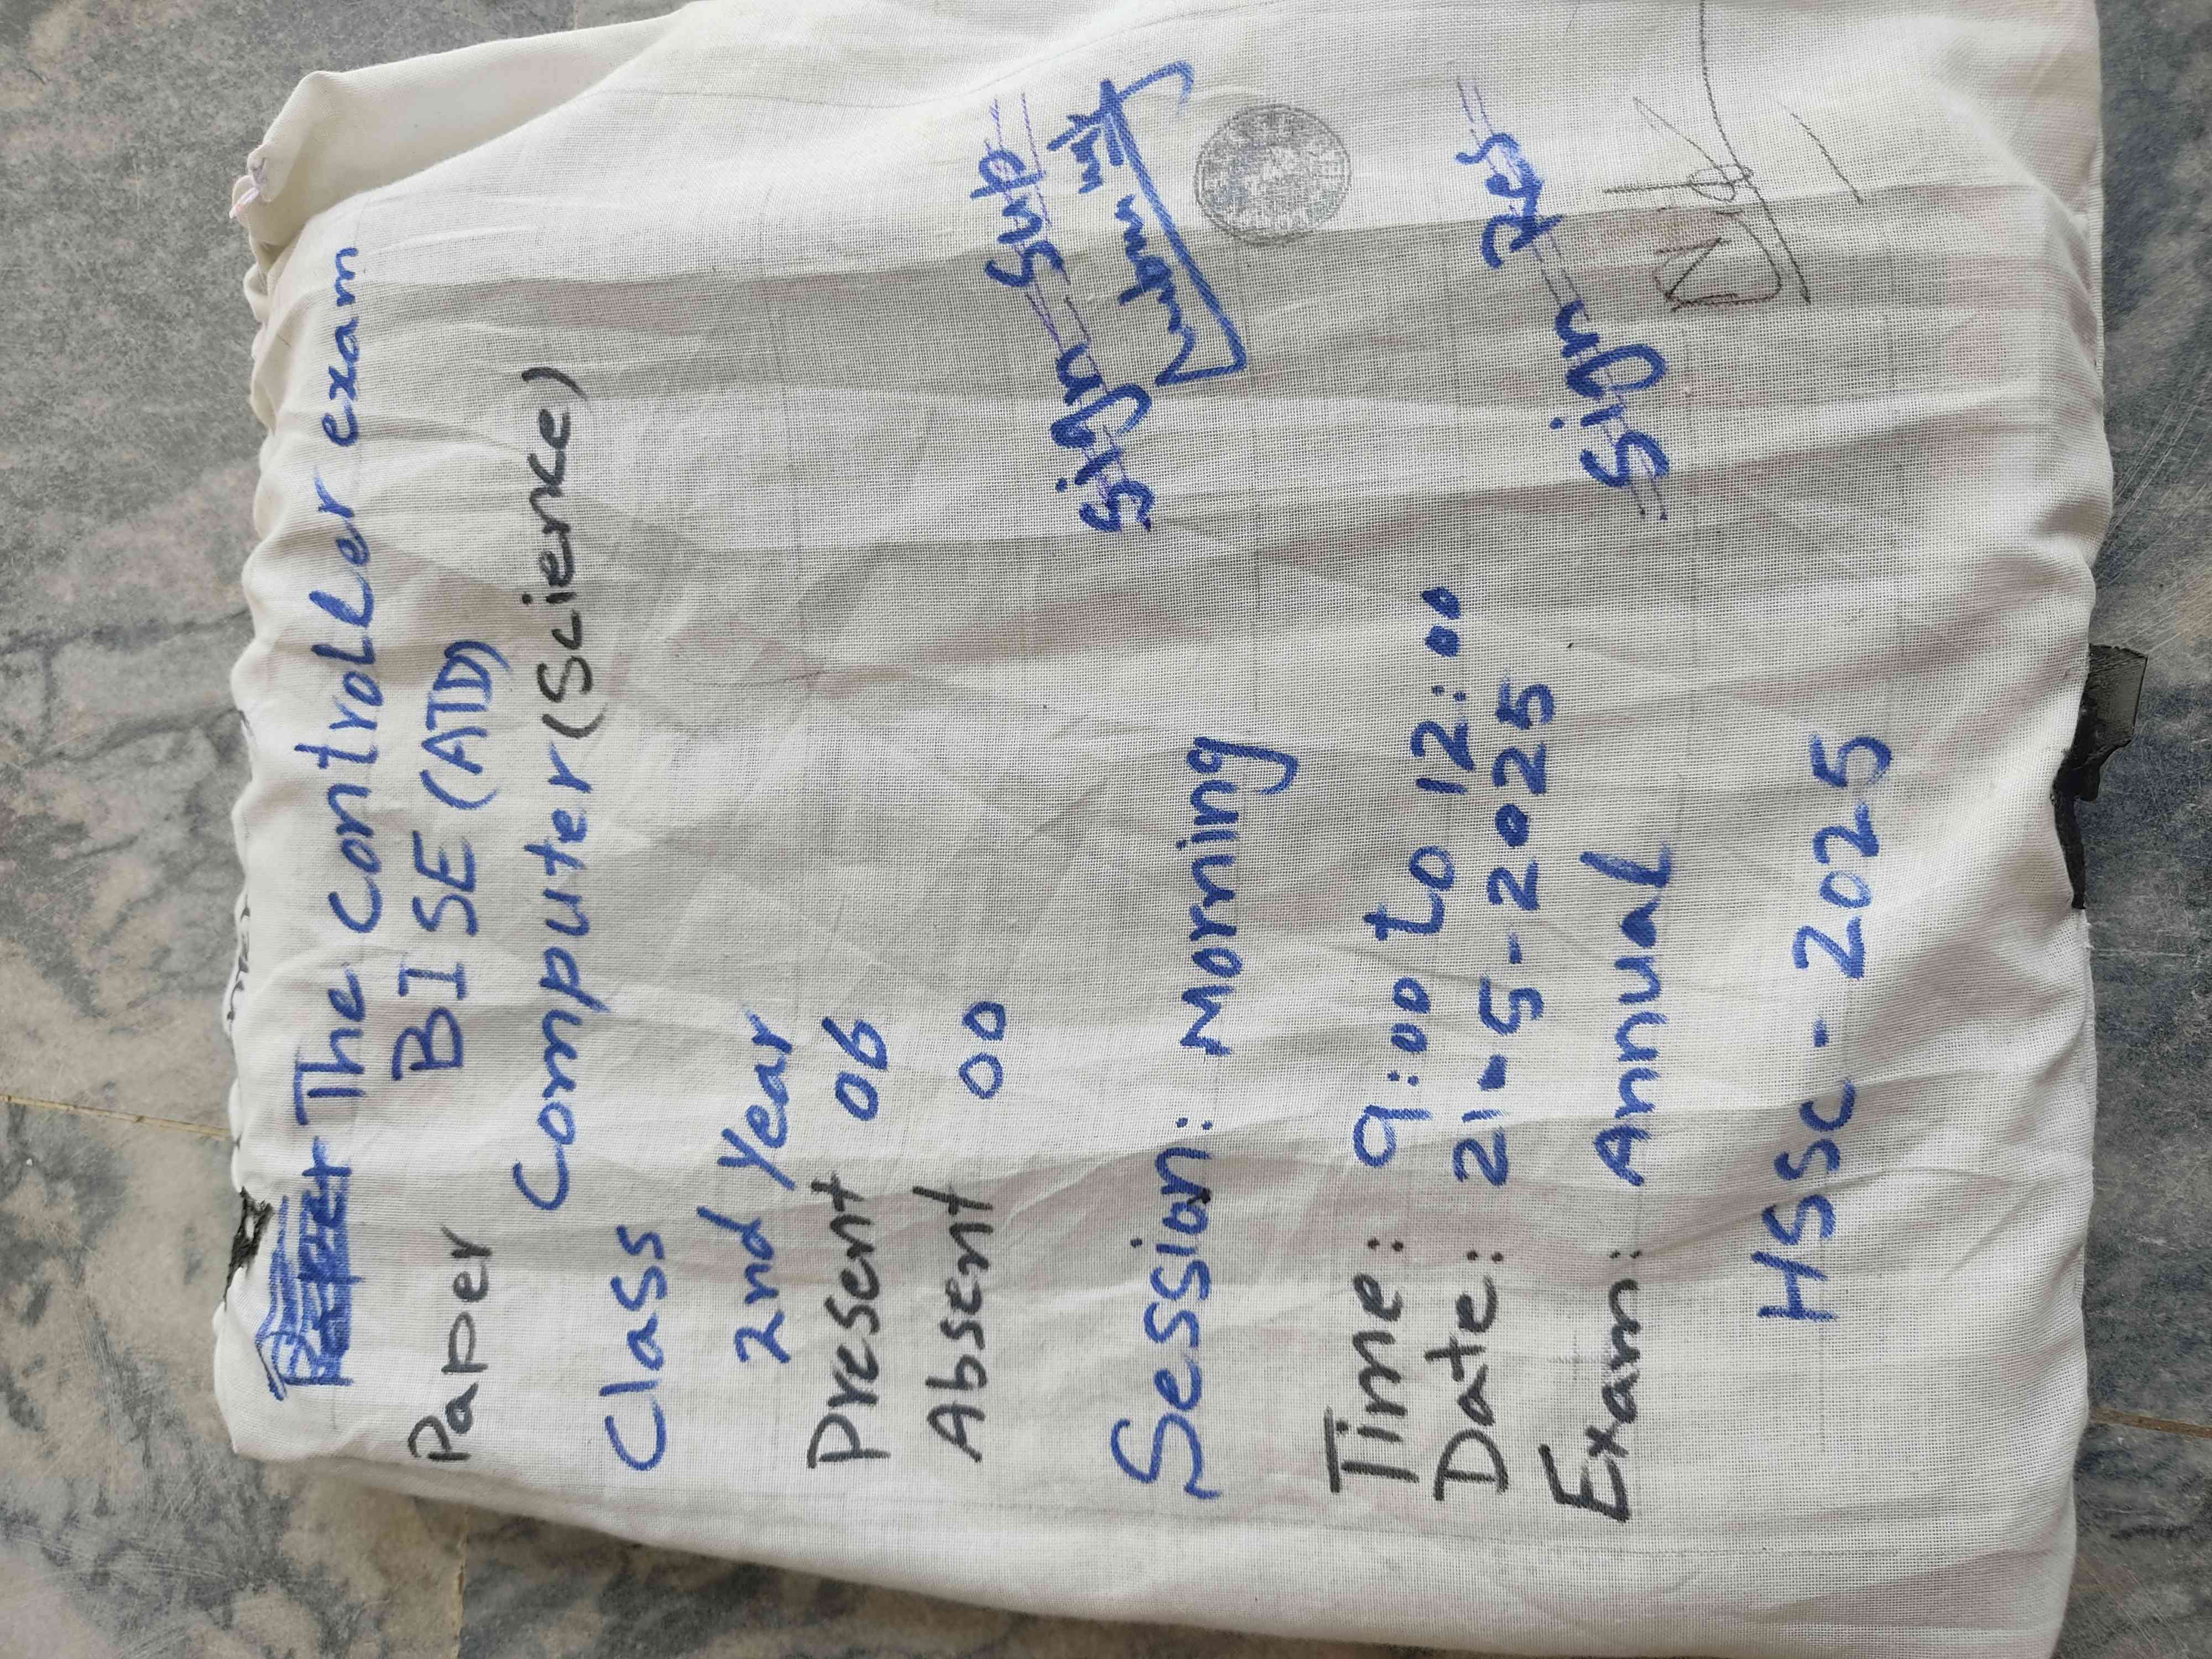 The controller exam
BISE (ATD)
Paper
Computer (Science)
Class
2nd Year
Present 06
Absent 00
Sign Sup
Session: Morning
Time: 9:00 to 12:00
Date: 21-5-2025
Sign Res
Exam: Annual
HSSC - 2025